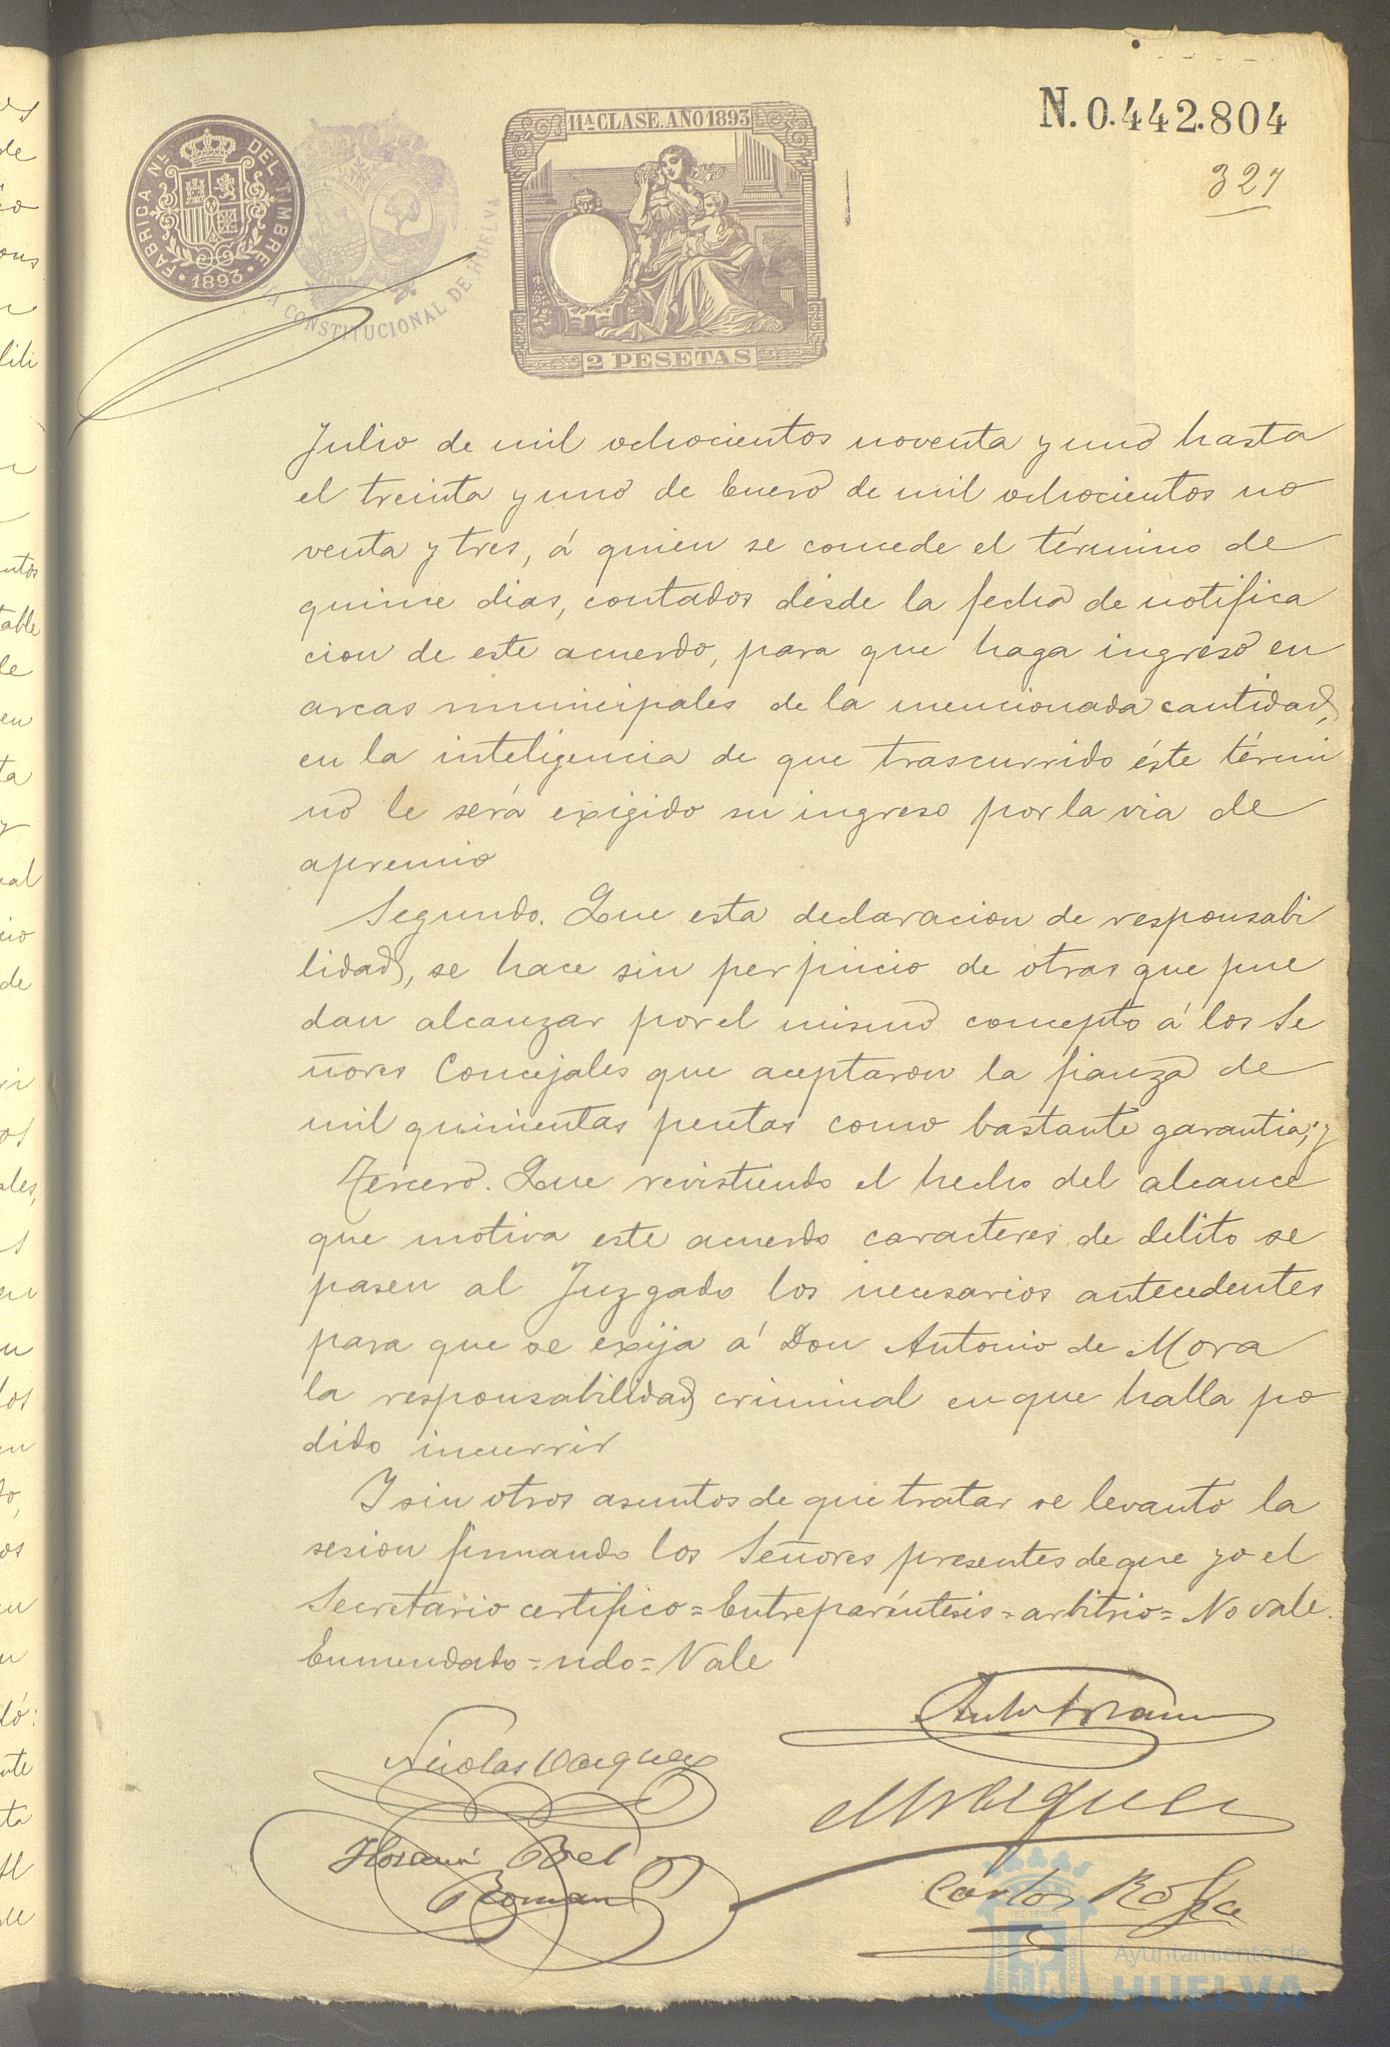 N. 0.442.804
327
FABRICA NL. DEL TIMBRE
1893
CONSTITUCIONAL DE HUELVA
11ª CLASE. AÑO 1893
2 PESETAS
Julio de mil ochocientos noventa y uno hasta
el treinta y uno de Enero de mil ochocientos no
venta y tres, á quien se concede el término de
quince dias, contados desde la fecha de notifica
cion de este acuerdo, para que haga ingreso en
arcas municipales de la mencionada cantidad,
en la inteligencia de que trascurrido éste térmi
no le será exigido su ingreso por la via de
apremio
Segundo. Que esta declaracion de responsabi
lidad, se hace sin perjuicio de otras que pue
dan alcanzar por el mismo concepto á los Se
ñores Concejales que aceptaron la fianza de
mil quinientas pesetas como bastante garantia; y
Tercero. Que revistiendo el hecho del alcance
que motiva este acuerdo caracteres de delito se
pasen al Juzgado los necesarios antecedentes
para que se exija á Don Antonio de Mora
la responsabilidad criminal en que halla po
dido incurrir
Y sin otros asuntos de que tratar se levantó la
sesion firmando los Señores presentes de que yo el
Secretario certifico = Entreparéntesis = arbitrio = No vale.
Enmendado = ndo = Vale
Nicolas Vazquez
Roman
Carlos
Ayuntamiento de
HUELVA